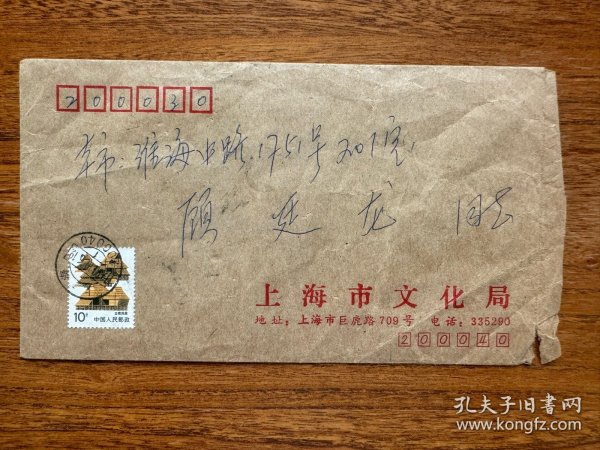 200030
本市:淮海中路1751号201室
顾廷龙 同志
10分
中国人民邮政
上海市文化局
地址:上海市巨鹿路709号 电话:335290
200040
孔夫子旧书网
www.kongfz.com